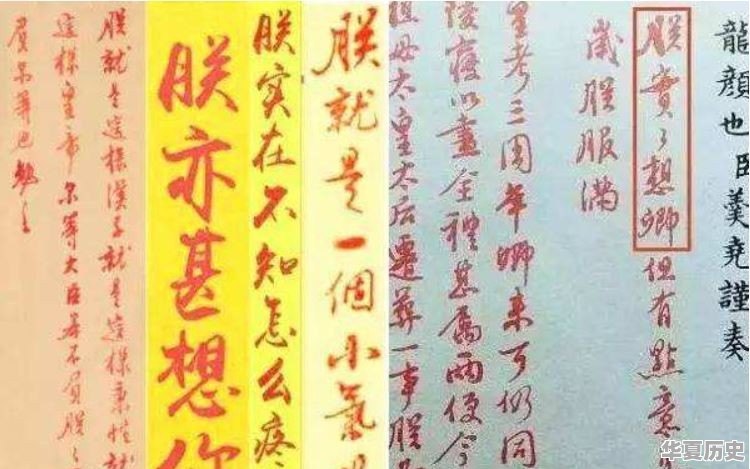 龍顏也臣羹堯謹奏
朕實々想卿但有點意
歲朕服滿
皇考三周年卿来可仍同
陵寢以盡全禮甚属两便今
祖母太皇太后遷葬一事朕
朕就是一個小氣
朕实在不知怎么疼
朕亦甚想你
朕就是這樣漢子就是這樣秉性就
這樣皇帝尔等大臣若不負朕々
負尔等也勉之
华夏历史